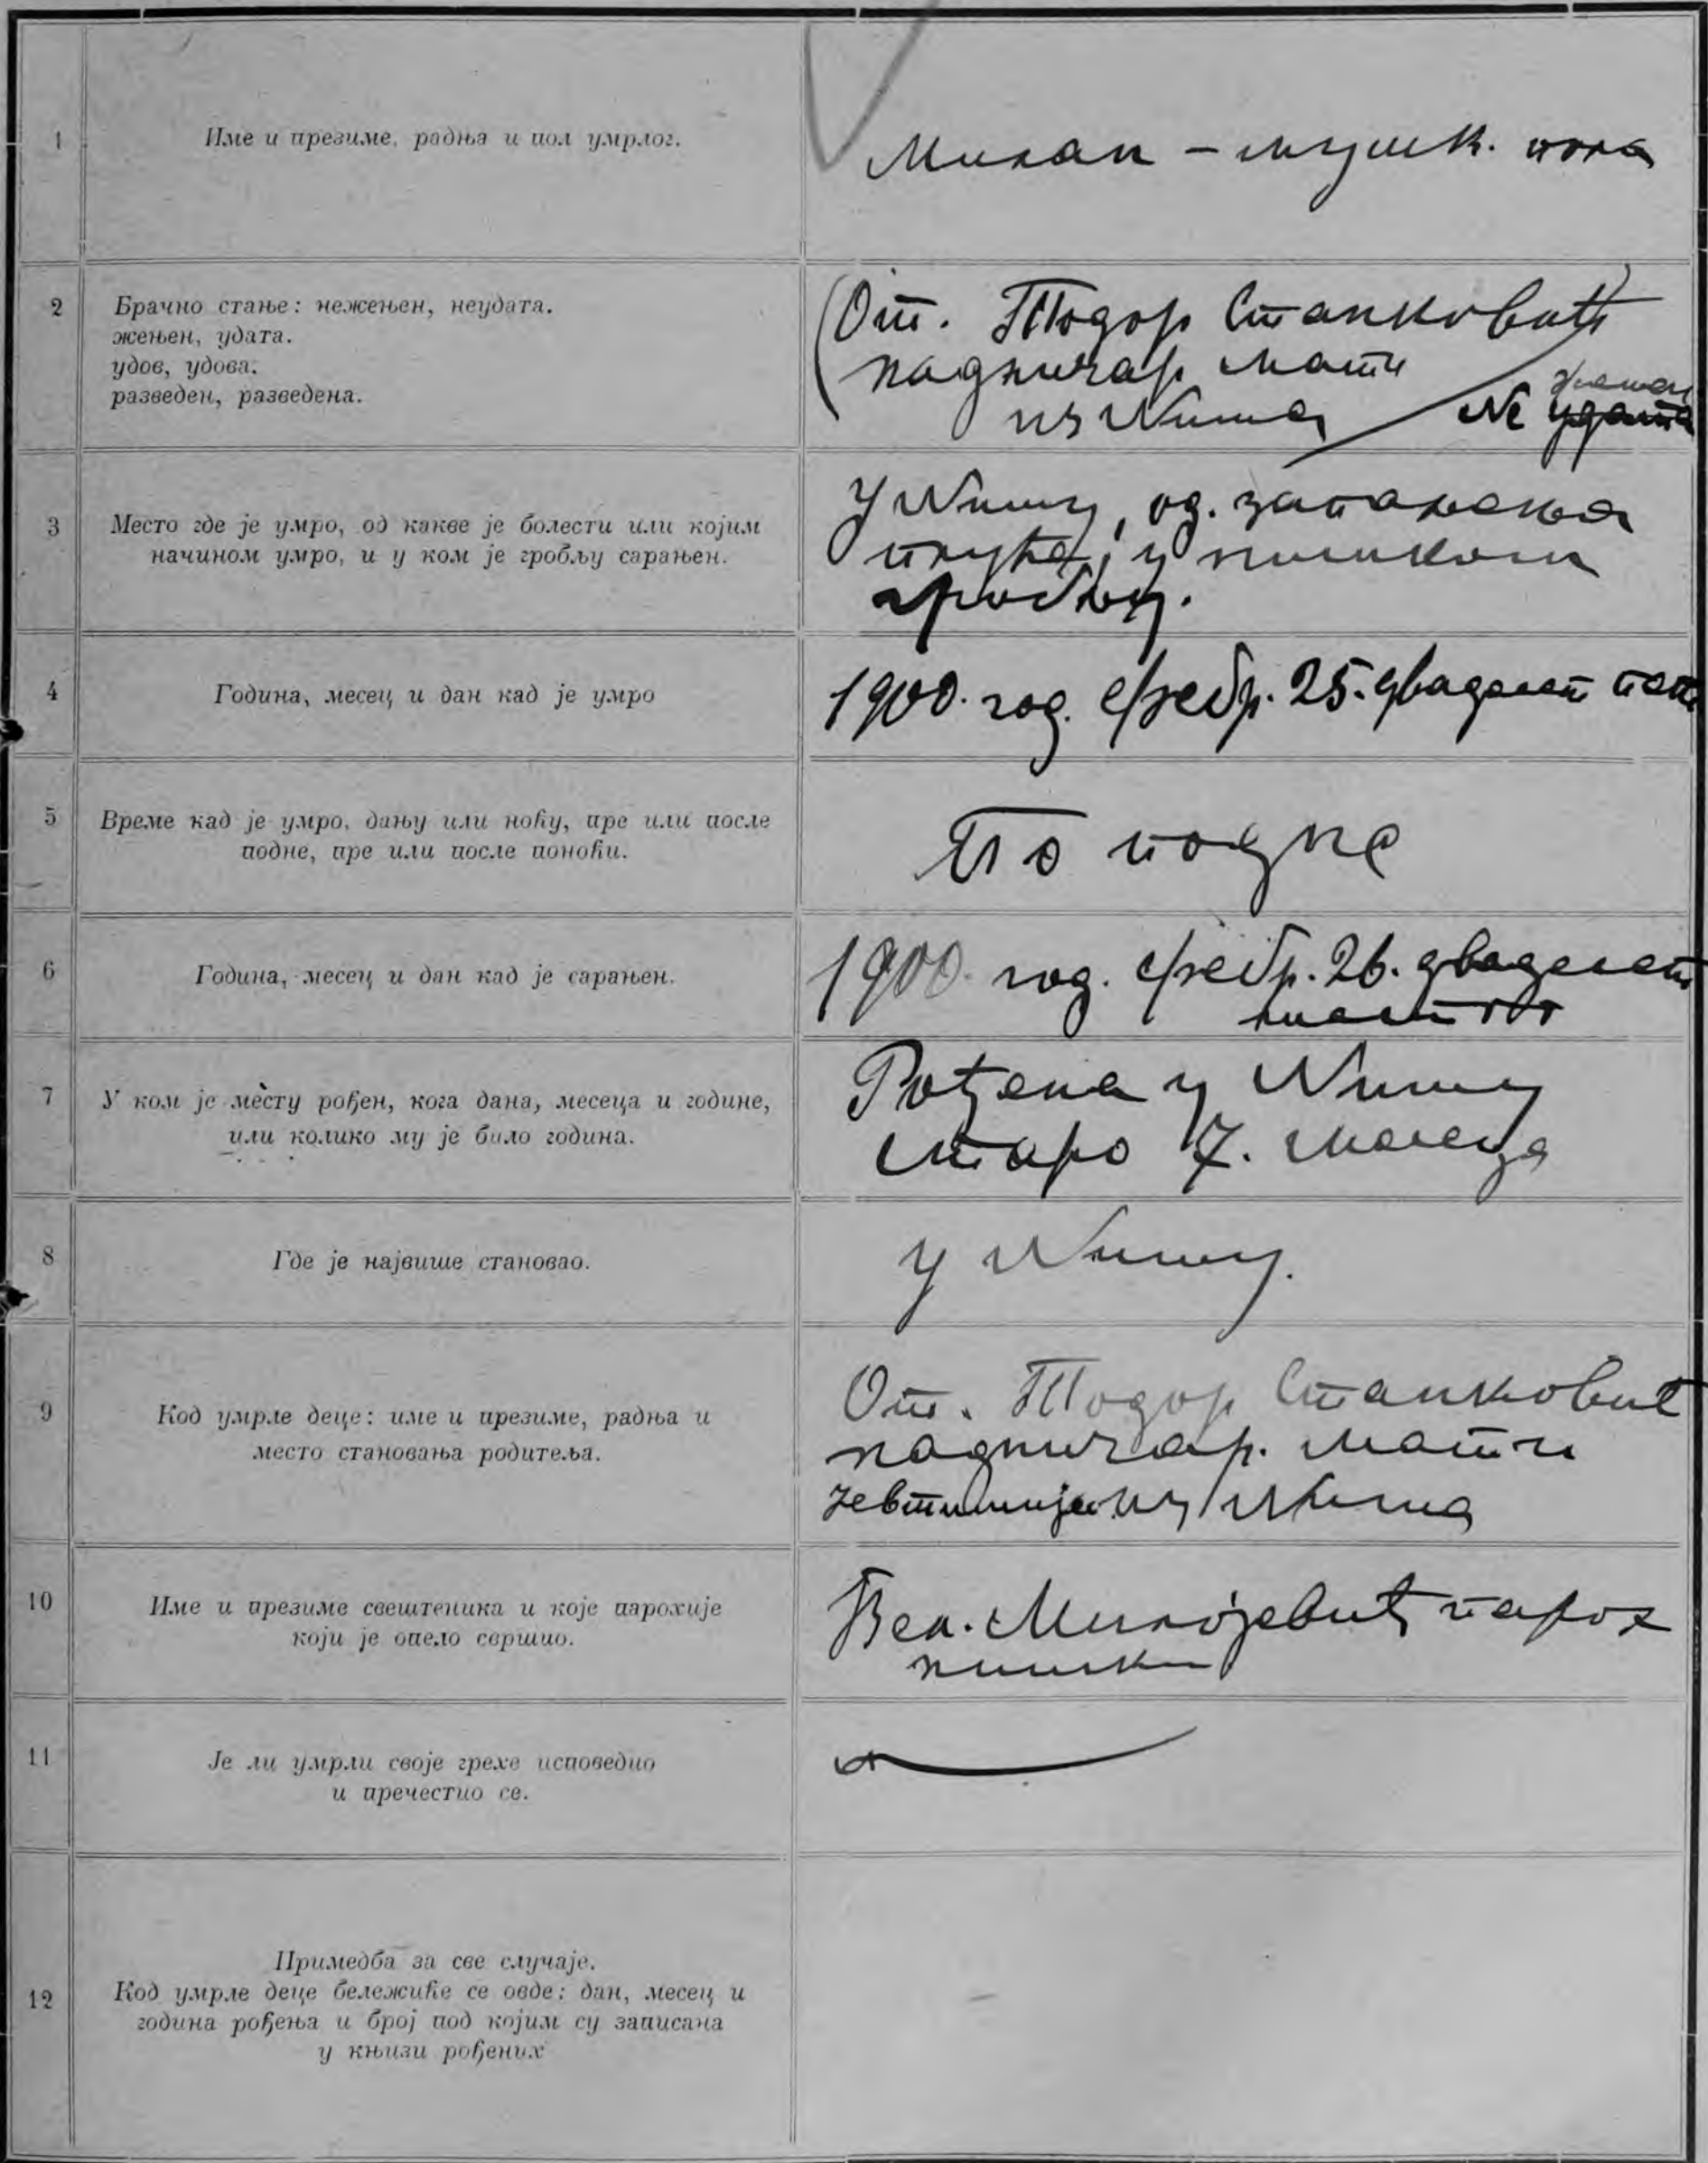 1
Име и презиме, радња и пол умрлог.
Милан – мушк. пола
2
Брачно стање: нежењен, неудата.
жењен, удата.
удов, удова.
разведен, разведена.
От. Тодор Станковић
надничар мати
из Ниша
Не удата
3
Место где је умро, од какве је болести или којим
начином умро, и у ком је гробљу сарањен.
У Нишу, од. запалења
плућа, у нишком
гробљу.
4
Година, месец и дан кад је умро
1900. год. Фебр. 25. двадесет пет
5
Време кад је умро, дању или ноћу, пре или после
подне, пре или после поноћи.
По подне
6
Година, месец и дан кад је сарањен.
1900. год. Фебр. 26. двадесет
7
У ком је месту рођен, кога дана, месеца и године,
или колико му је било година.
Рођена у Нишу
старо 7. месеца
8
Где је највише становао.
У Нишу.
9
Код умрле деце: име и презиме, радња и
место становања родитеља.
От. Тодор Станковић
надничар. мати
Јевтимија из Ниша
10
Име и презиме свештеника и које парохије
који је опело свршио.
Вел. Милојевић парох
нишки
11
Је ли умрли своје грехе исповедио
и пречестио се.
12
Примедба за све случаје.
Код умрле деце бележиће се овде: дан, месец и
година рођења и број под којим су записана
у књизи рођених